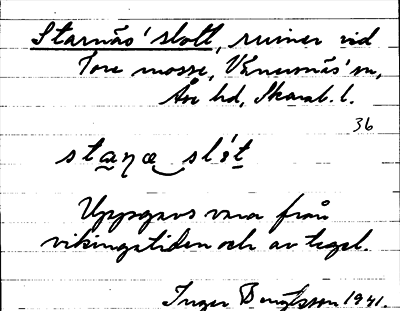 Starnäs' slott, ruiner vid
Tore mosse, Vänersnäs' sn,
Åse hd, Skarab. l.
36
Uppgavs vara från
vikingatiden och av tegel.
Inger Bengtsson 1941.